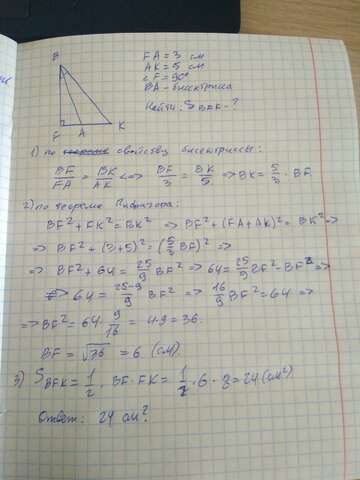 B
FA = 3 см
AK = 5 см
∠F = 90°
BA - биссектриса
Найти: S BFK - ?
F A K
1) по свойству биссектрисы:
BF/FA = BK/AK <=> BF/3 = BK/5 => BK = 5/3 · BF
2) по теореме Пифагора:
BF² + FK² = BK² => BF² + (FA + AK)² = BK² =>
=> BF² + (3+5)² = (5/3 BF)² =>
=> BF² + 64 = 25/9 BF² => 64 = 25/9 BF² - BF² =>
=> 64 = 25-9/9 BF² => 16/9 BF² = 64 =>
=> BF² = 64 · 9/16 = 4·9 = 36.
BF = √36 = 6 (см)
3) S BFK = 1/2 · BF · FK = 1/2 · 6 · 8 = 24 (см²)
Ответ: 24 см².